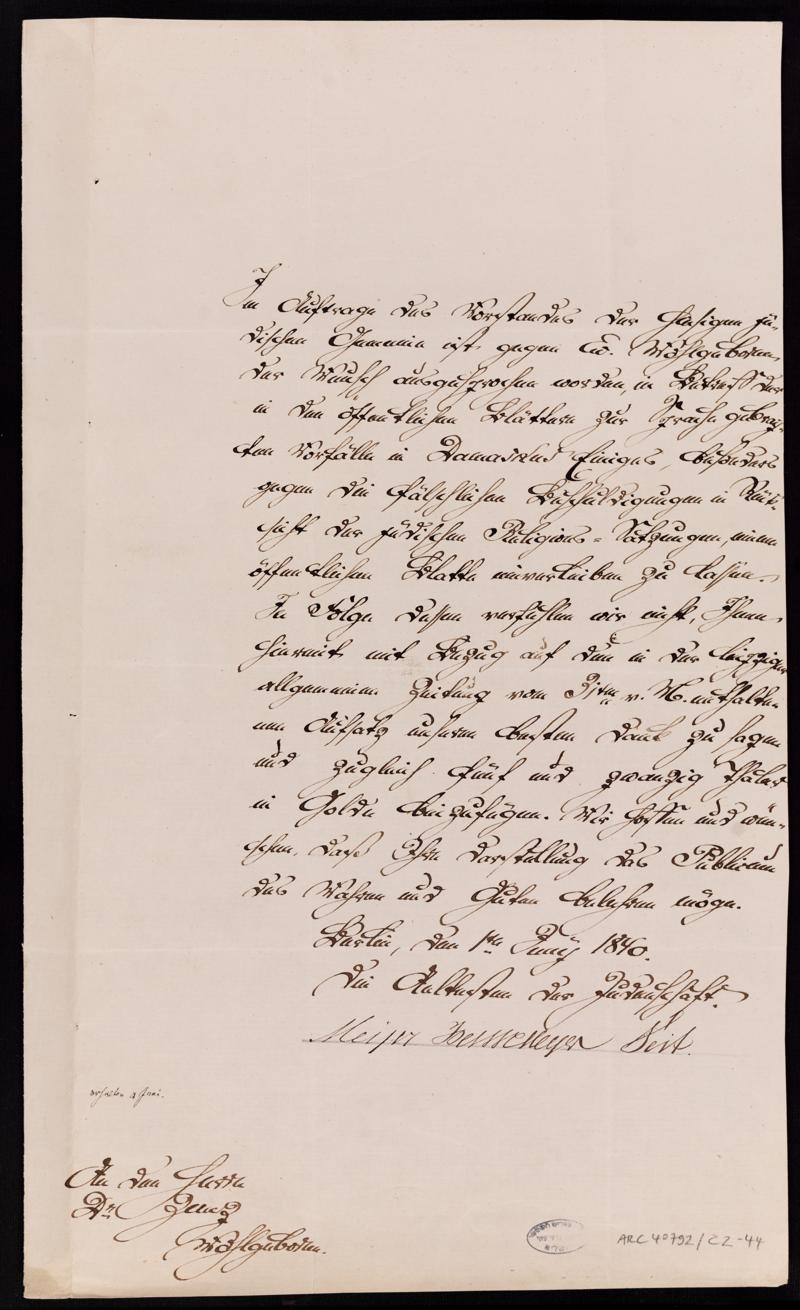 Im Auftrage des Vorstandes der hiesigen jü-
dischen Gemeine ist gegen Ew. Wohlgeboren
der Wunsch ausgesprochen worden, in Betreff der
in den öffentlichen Blättern zur Sprache gebrach-
ten Vorfälle in Damaskus Einiges, besonders
gegen die fälschlichen Beschuldigungen in Rück-
sicht der jüdischen Religions-Satzungen, einem
öffentlichen Blatte einverleiben zu lassen.
In Folge dessen verfehlen wir nicht, Ihnen
hiermit mit Bezug auf den in der leipziger
allgemeinen Zeitung vom 31ten v. M. enthalte-
nen Aufsatz unseren besten Dank zu sagen
und zugleich fünf und zwanzig Thaler
in Golde beizufügen. Wir hoffen und wün-
schen, daß Ihre Darstellung das Publicum
des Wahren und Guten belehren möge.
Berlin, den 1ten Junÿ 1840.
Die Aeltesten der Judenschaft.
Meyer Veit.
erhalten 4 Juni.
An den Herrn
Dr. Zunz
Wohlgeboren.
ARC 4° 792/C2-44